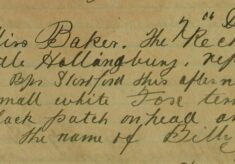 Miss Baker. The Rect
Hallingbury, rep
Bps Stortford this aftern
small white Fox terr
black patch on head an
the name of Billy